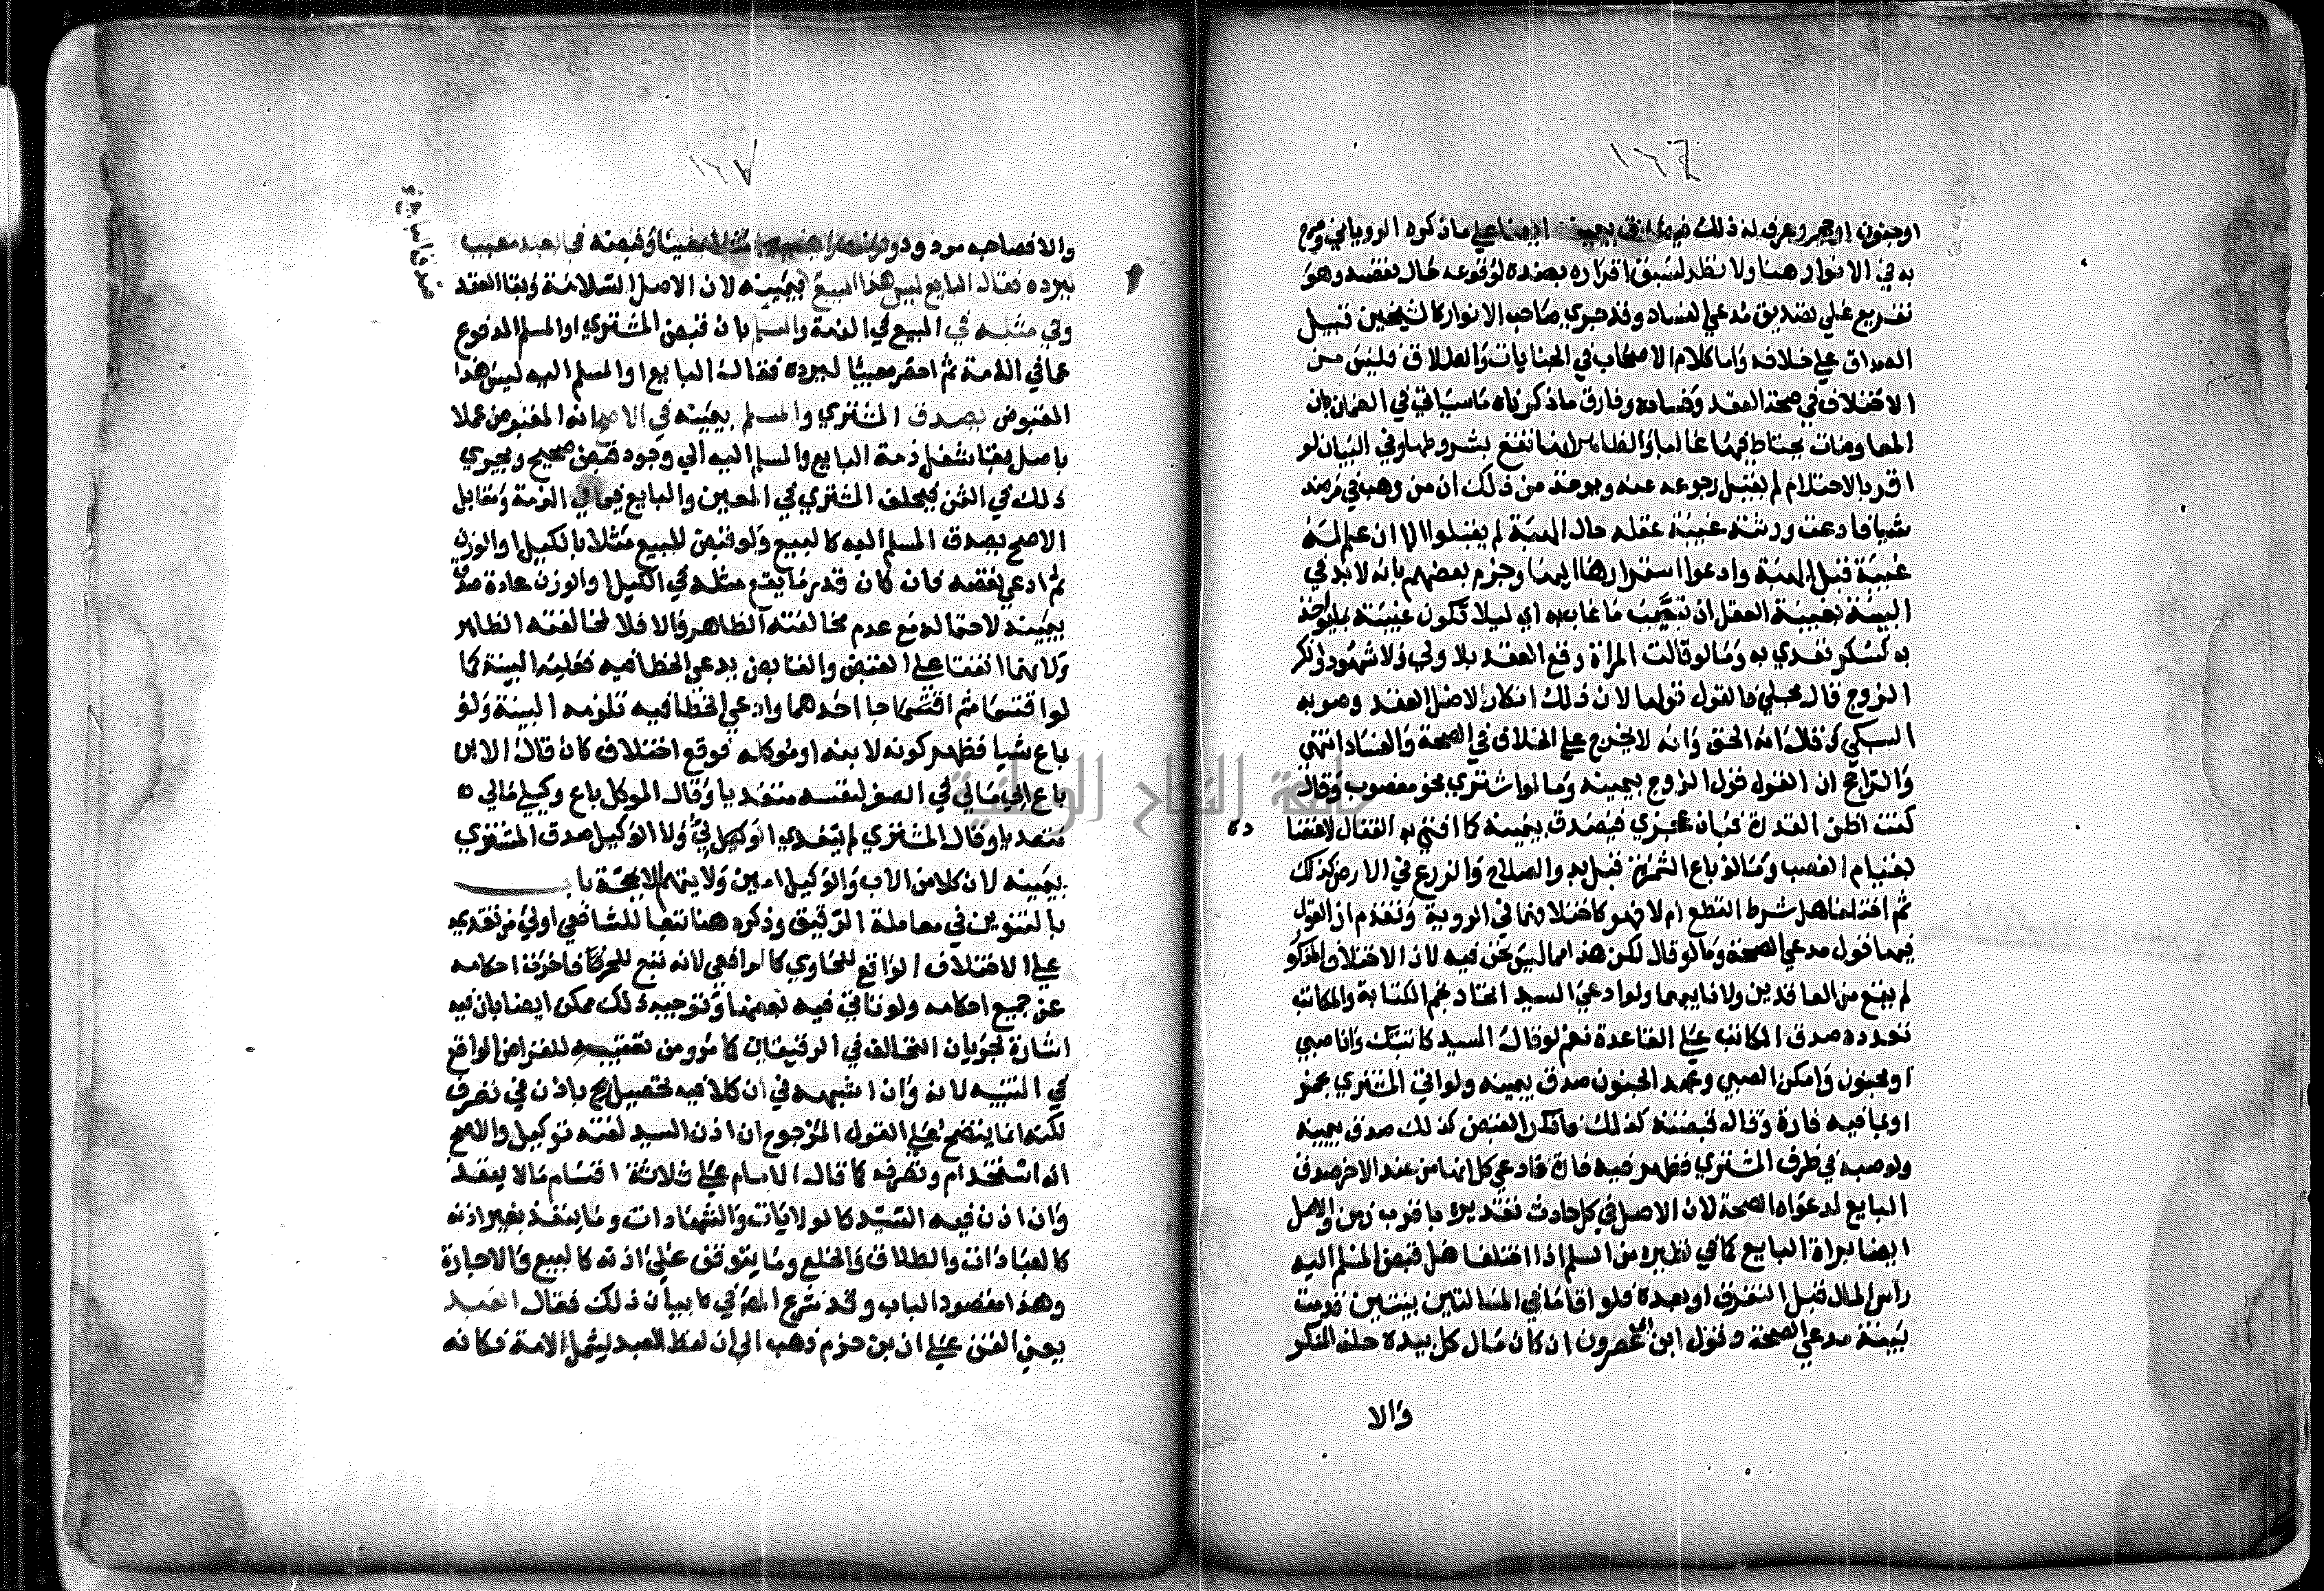 ١٦٦
او جنون او حجر وعرف له ذلك فيصدق بيمينه ايضا علي ما ذكره الروياني وصرح
به في الانوار هنا ولا نظر لسبق اقراره بضده لوقوعه حال نقضه وهو
تفريع علي تصديق مدعي الفساد وقد جري صاحب الانوار كالشيخين قبيل
الصداق علي خلافه واما كلام الاصحاب في الجنايات والطلاق فليس من
الاختلاف في صحة العقد وفساده وفارق ما ذكرناه ما سياتي في الضمان بان
المعاوضات يحتاط فيها غالبا والظاهر انها تقع بشروطها وفي البيان لو
اقر بالاحتلام لم يقبل رجوعه عنه ويوخذ من ذلك ان من وهب في مرضه
شيا فادعت ورثته غيبة عقله حال الهبة لم يقبلوا الا ان علم له
غيبة قبل الهبة وادعوا استمرارها ايضا وجزم بعضهم بانه لا بد في
البينة بغيبة العقل ان تبين ما غاب به اي ليلا تكون غيبته بما يواخذ
به كسكر تعدي به وما لو قالت المراة وقع العقد بلا ولي ولا شهود وانكر
الزوج فالقول قولها لان ذلك انكار لاصل العقد وصوبه
السبكي انه الحق وانه لا يخرج علي الخلاف في الصحة والفساد انتهي
والراجح ان القول قول الزوج بيمينه وما لو اشتري نحو مغصوب وقال
كنت اظن القدرة فبان عجزي فيصدق بيمينه كما افتي به القفال لاعتضاده
بقيام الغصب وما لو باع الثمرة قبل بدو الصلاح والزرع في الارض كذلك
ثم اختلفا هل شرط القطع ام لا فهو كاختلافهما في الروية وتقدم ان القول
فيها قول مدعي الصحة وما لو قال لكن هذا مما ليس نحن فيه لان الاختلاف المذكور
لم يقع من العاقدين ولا نايبهما ولو ادعي السيد اتحاد نجم الكتابة والمكاتب
تعدده صدق المكاتب علي القاعدة نعم لو قال السيد كاتبتك وانا صبي
او مجنون وامكن الصبي وعهد الجنون صدق بيمينه ولو اتي المشتري بخمر
او بما فيه فارة وقال قبضته كذلك فانكر القبض كذلك صدق بيمينه
ولو صبه في ظرف المشتري فظهر فيه فارة فادعي كل انها من عند الاخر صدق
البايع لدعواه الصحة لان الاصل في كل حادث تقديره باقرب زمن والاصل
ايضا براة البايع كما في نظيره من السلم اذا اختلفا هل قبض المسلم اليه
راس المال قبل التفرق او بعده فلو اقاما في المسالتين بينتين قدمت
بينة مدعي الصحة وقول ابن ابي عصرون ان كان مال كل بيده حلف المنكر
والا
١٦٧
والا فصاحبه مردود معيبا وقبضه في
ليرده فقال البايع ليس هذا المبيع بيمينه لان الاصل السلامة وبقا العقد
وفي مثله في المبيع في الذمة والسلم بان قبض المشتري او المسلم المدفوع
عما في الذمة ثم احضر معيبا ليرده فقال البايع او المسلم اليه ليس هذا
المقبوض يصدق المشتري والمسلم بيمينه في الاصح انه المقبوض عملا
باصل بقا شغل ذمة البايع والمسلم اليه الي وجود قبض صحيح ويجري
ذلك في الثمن فيحلف المشتري في المعين والبايع فيما في الذمة ومقابل
الاصح يصدق المسلم اليه كالبيع ولو قبض المبيع مثلا بالكيل او الوزن
ثم ادعي نقصه فان كان قدر ما يقع مثله في الكيل او الوزن عادة صدق
بيمينه لاحتماله مع عدم مخالفته الظاهر والا فلا لمخالفته الظاهر
ولانهما اتفقا علي القبض والقابض يدعي الخطا فيه فعليه البينة كما
لو اقتسما ثم اقتسما جا احدهما وادعي الخطا فيه تلزمه البينة ولو
باع شيا فظهر كونه لابنه او موكله فوقع اختلاف كان قال الابن
باع ابي مالي في الصغر لنفسه متعديا وقال الموكل باع وكيلي مالي
متعديا وقال المشتري لم يتعد الولي ولا الوكيل صدق المشتري
بيمينه لان كلا من الاب والوكيل امين ولا يتهم الا بحجة باب
بالتنوين في معاملة الرقيق وذكره هنا تبعا للشافعي اولي من تقديمه
علي الاختلاف الواقع للحاوي كالرافعي لانه تبع للحر فاخرت احكامه
عن جميع احكامه ولو ناتي فيه بعضها وتوجيه ذلك ممكن ايضا بان فيه
اشارة لجريان التحالف في الرقيقين كما مر ومن تعقيبه للقراض الواقع
في التنبيه لانه وان اشبهه في ان كلا فيه تحصيل ربح باذن في تصرف
لكنه انما يتضح علي القول المرجوح ان اذن السيد لقنه توكيل والاصح
انه استخدام وتصرفه كما قال الامام علي ثلاثة اقسام ما لا ينفذ
وان اذن فيه السيد كالولايات والشهادات وما ينفذ بغير اذنه
كالعبادات والطلاق والخلع وما يتوقف علي اذنه كالبيع والاجارة
وهذا مقصود الباب وقد شرع المص في بيان ذلك فقال العبد
يعني القن علي ان بن حزم ذهب الي ان لفظ العبد ليشمل الامة فكانه
جامعة النجاح الوطنية